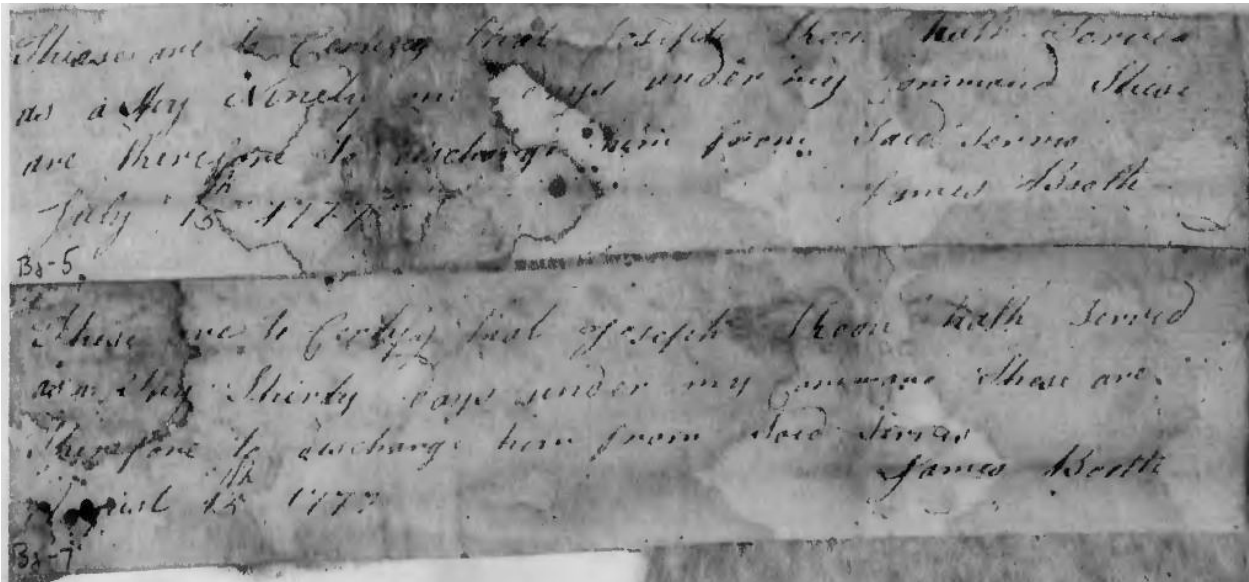 These are to Certify that Joseph Kroon hath Served
as a Spy Ninety one days under my Command these
are therefore to discharge him from Said Servis
July 15th 1777 James Booth
B2-5
These are to Certify that Joseph Kroon hath Served
as a Spy Thirty days under my Command these are
Therefore to discharge him from Said Servis
James Booth
April 15th 1777
B2-7